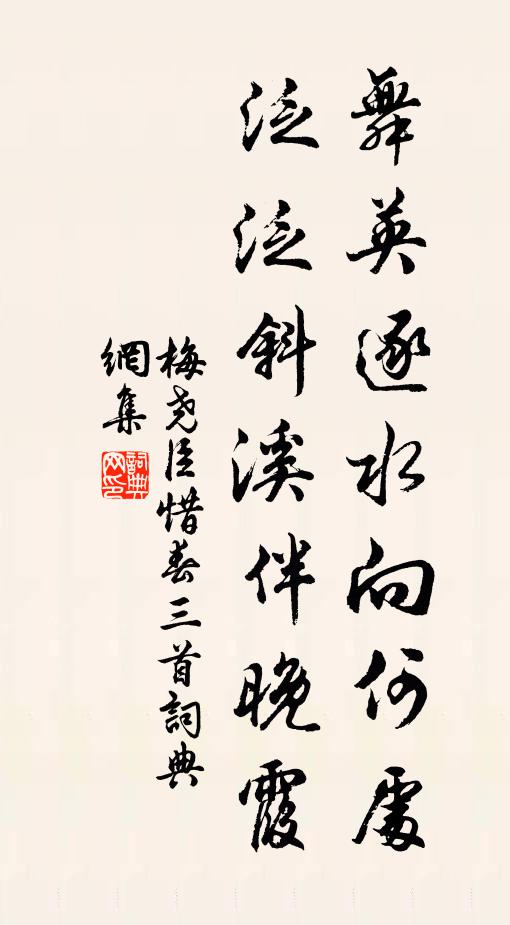 舞英逐水向何處
泛泛斜溪伴晚霞
梅尧臣惜春三首詞典
網集
詞典網印